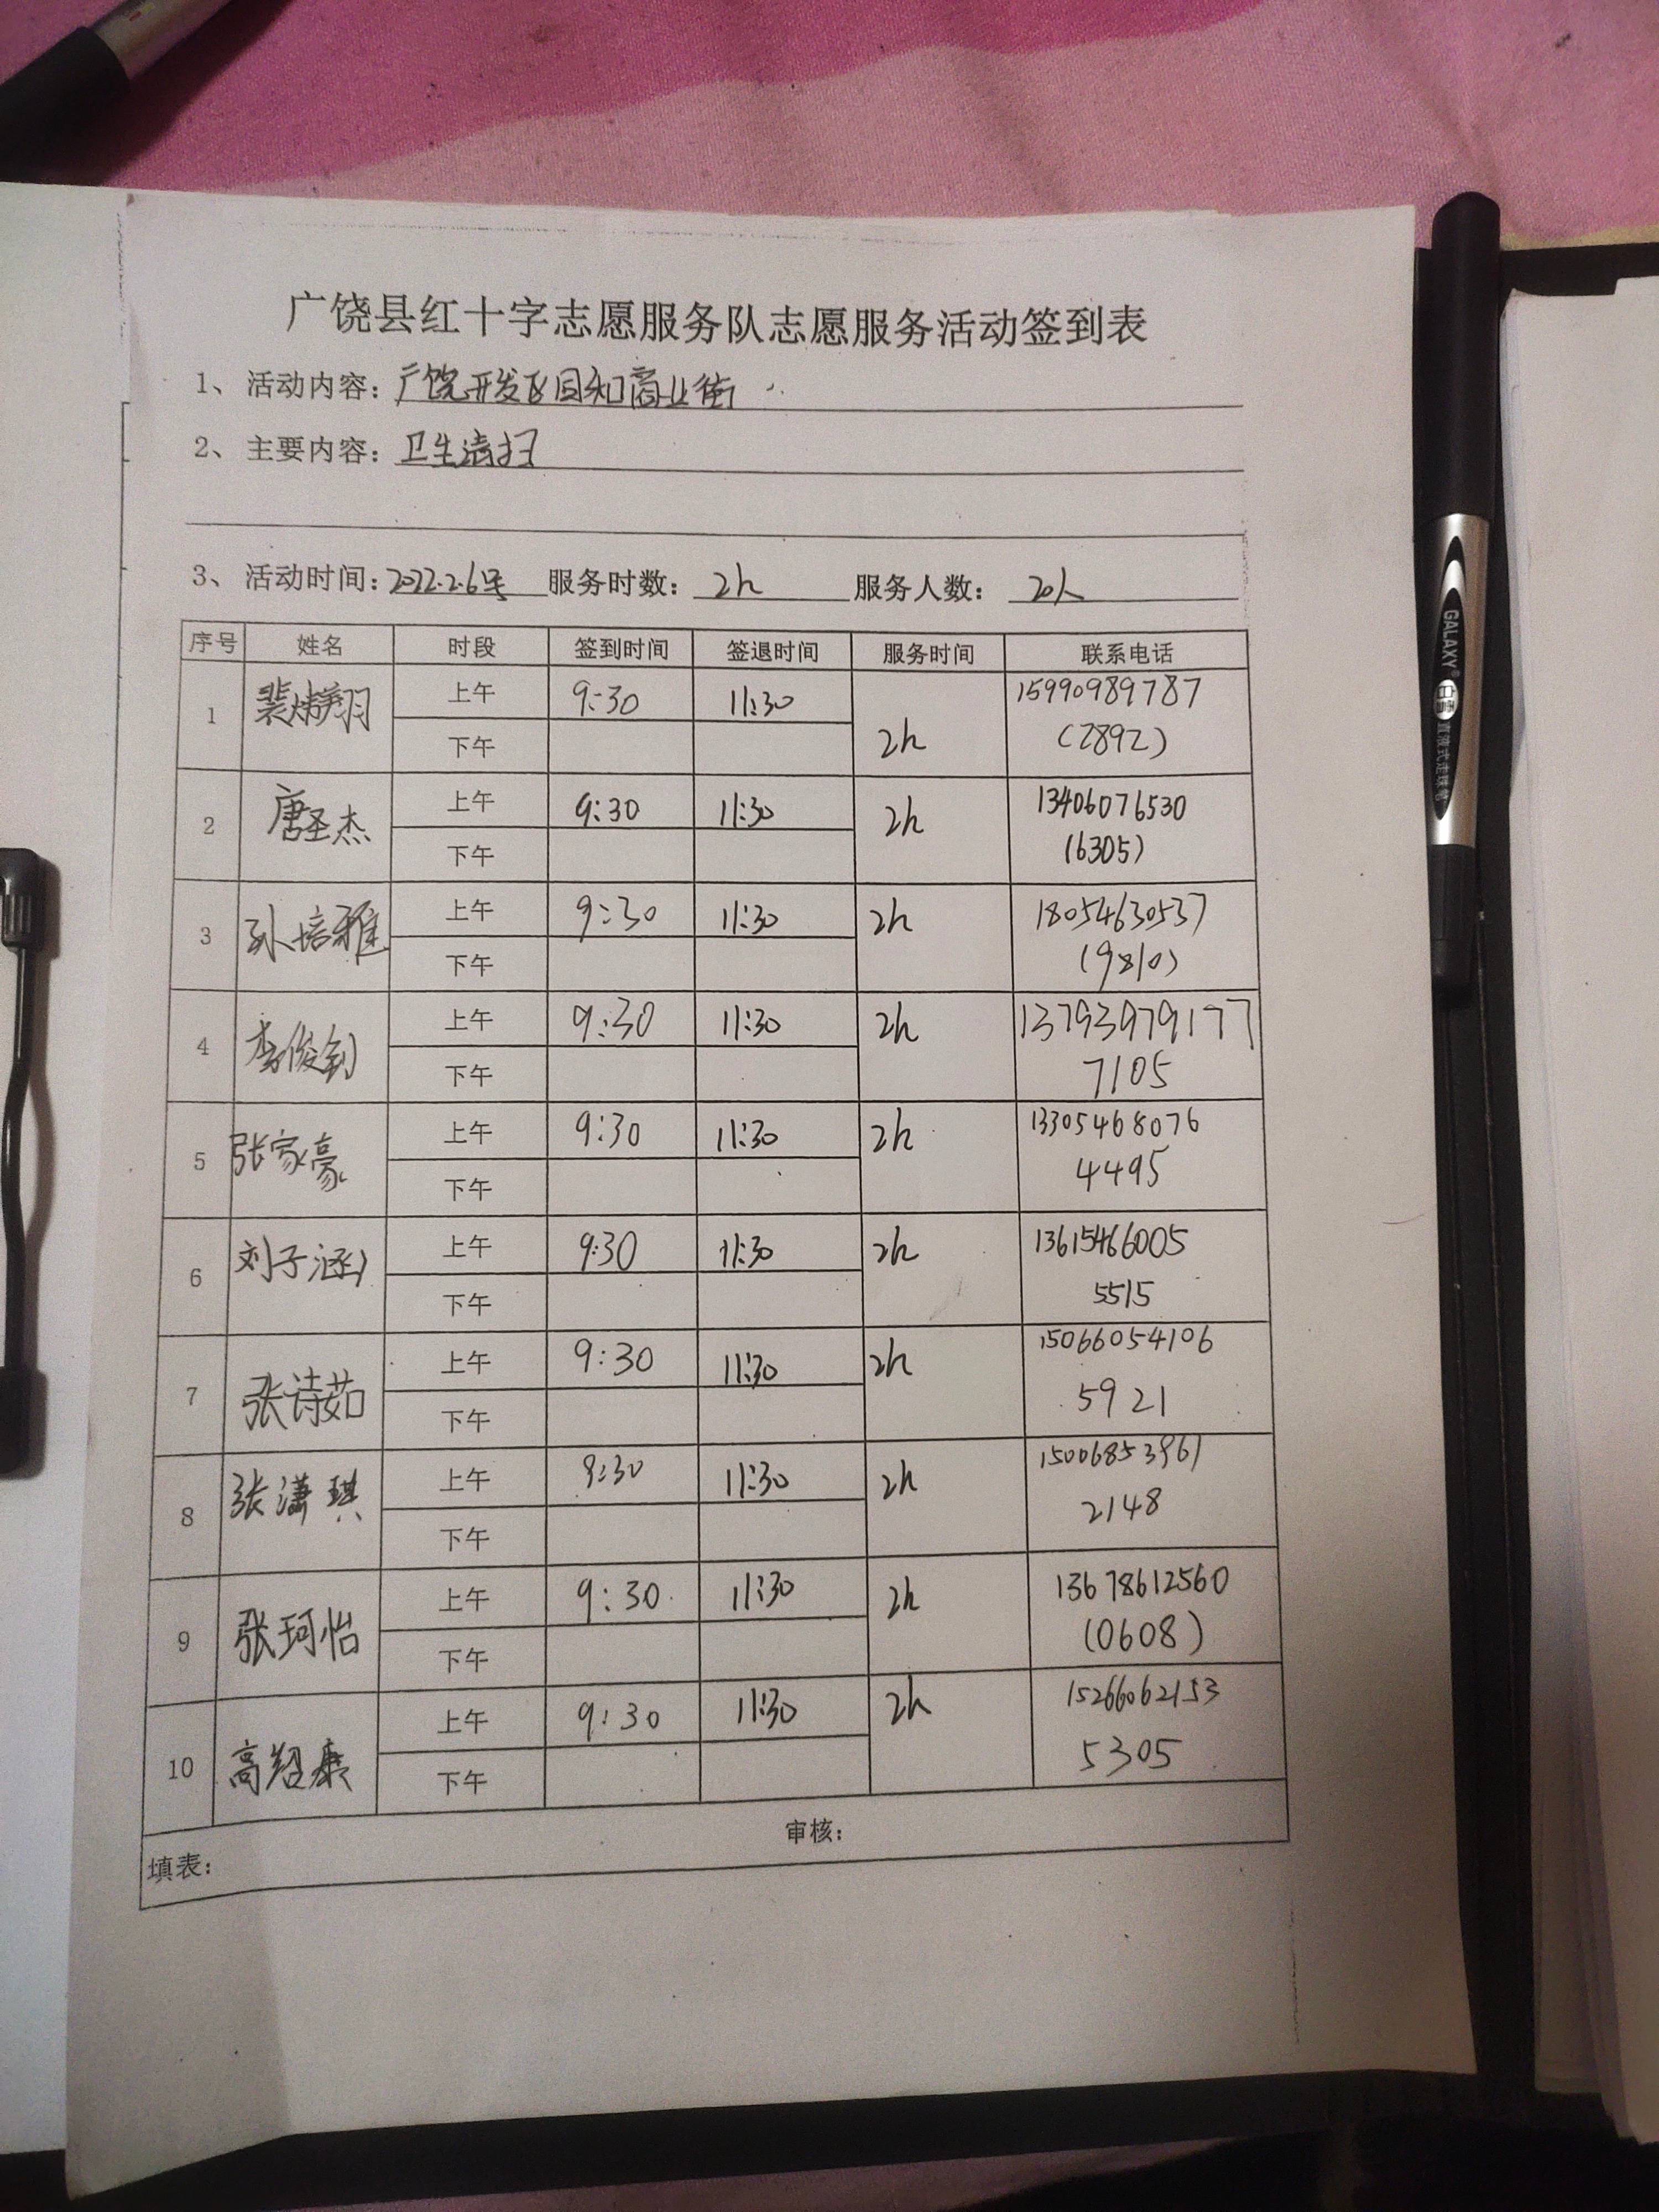 广饶县红十字志愿服务队志愿服务活动签到表
1、活动内容：广饶开发区同和商业街
2、主要内容：卫生清扫
3、活动时间：2022.2.6号 服务时数：2h 服务人数：20人
序号 姓名 时段 签到时间 签退时间 服务时间 联系电话
1 裴炜翔 上午 9:30 11:30 2h 15990989787
下午 (2892)
2 唐圣杰 上午 9:30 11:30 2h 13406076530
下午 (6305)
3 孙培雅 上午 9:30 11:30 2h 18054630537
下午 (9810)
4 李俊钊 上午 9:30 11:30 2h 13793979177
下午 7105
5 张家豪 上午 9:30 11:30 2h 13305468076
下午 4495
6 刘子涵 上午 9:30 11:30 2h 13615466005
下午 5515
7 张诗茹 上午 9:30 11:30 2h 15066054106
下午 5921
8 张潇琪 上午 9:30 11:30 2h 15006853961
下午 2148
9 张珂怡 上午 9:30 11:30 2h 13678612560
下午 (0608)
10 高绍康 上午 9:30 11:30 2h 15266062153
下午 5305
填表： 审核：
GALAXY
白雪 直液式走珠笔